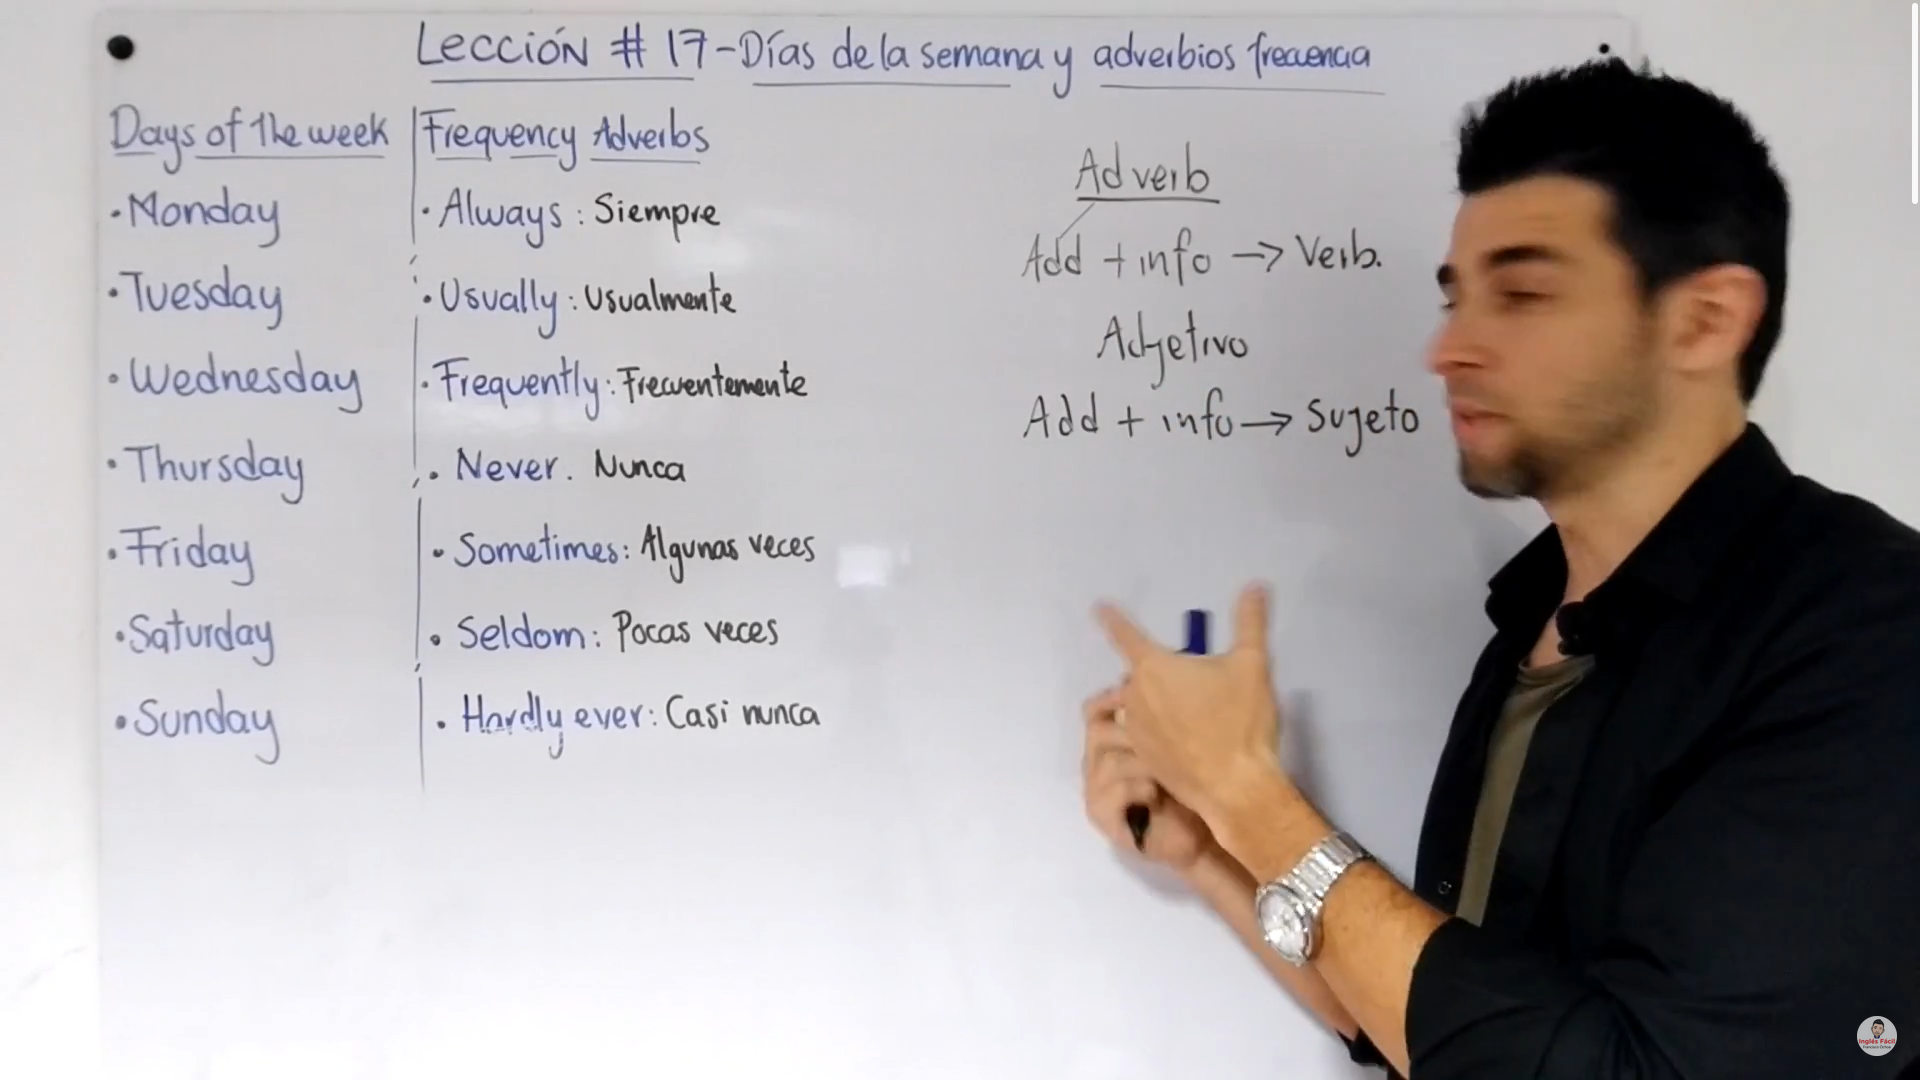 Lección # 17-Días de la semana y adverbios frecuencia
Days of the week
• Monday
• Tuesday
• Wednesday
• Thursday
• Friday
• Saturday
• Sunday
Frequency Adverbs
• Always: Siempre
• Usually: Usualmente
• Frequently: Frecuentemente
• Never. Nunca
• Sometimes: Algunas veces
• Seldom: Pocas veces
• Hardly ever: Casi nunca
Adverb
Add + info → Verb.
Adjetivo
Add + info → Sujeto
Inglés Fácil